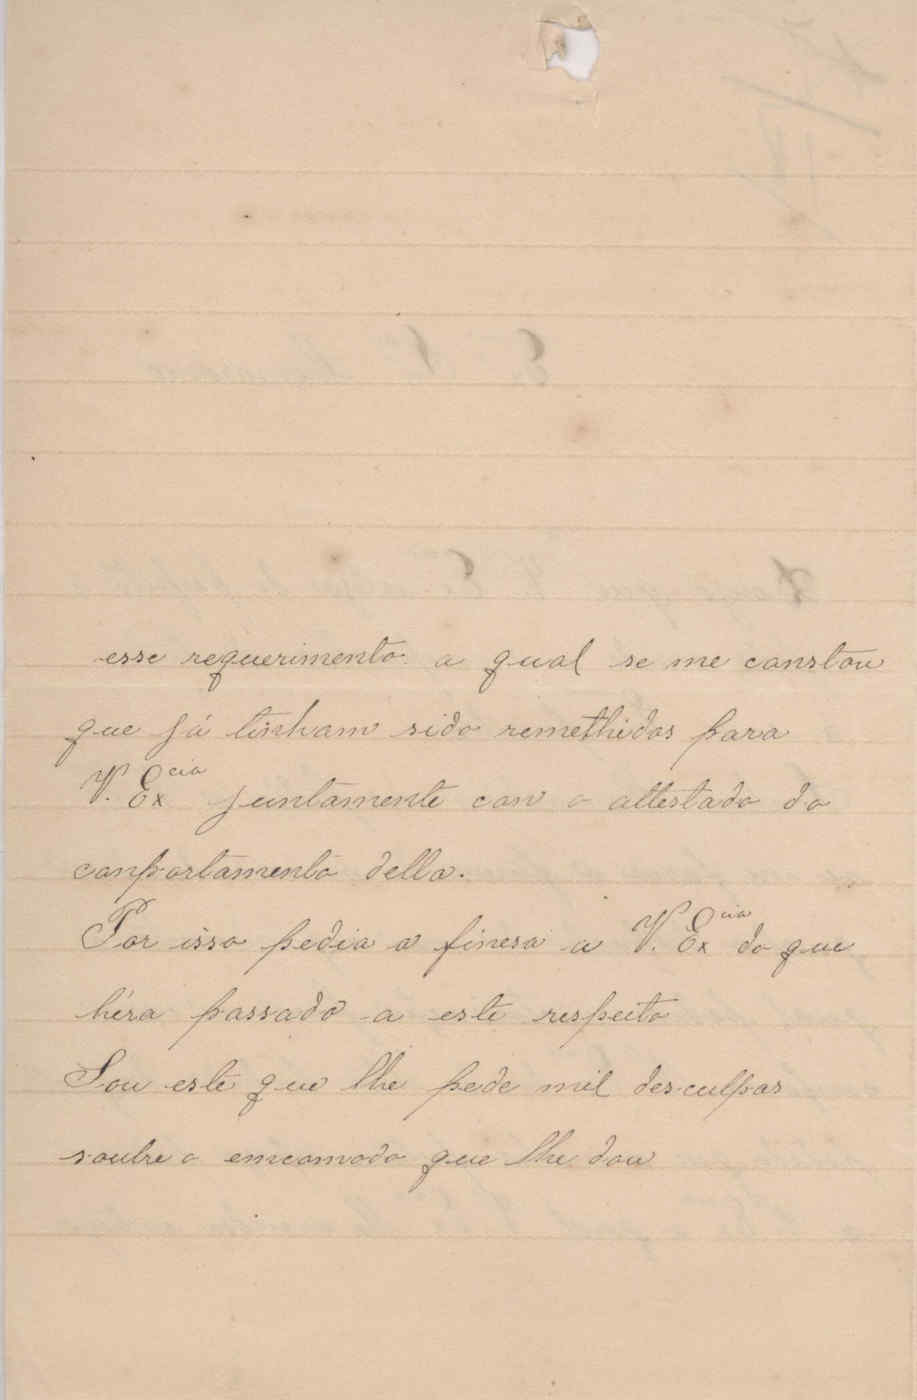 esse requerimento a qual se me constou
que já tinham sido remethidos para
V. Ex.cia juntamente con o attestado do
conportamento della.
Por isso pedia a finesa a V. Ex.cia do que
héra passado a este respeito
Sou este que lhe pede mil desculpas
soubre o emcomodo que lhe dou